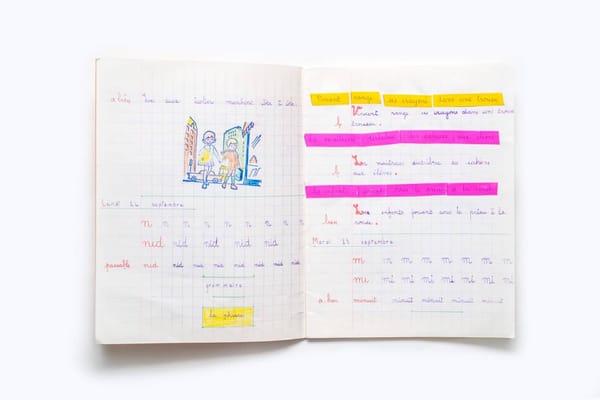 a bien Luc aux
Lundi 24 septembre
n n n n n n n n
nid nid nid nid nid
passable nid nid nid nid nid nid nid
grammaire
la phrase
Vincent range les crayons dans une trousse
Vincent range les crayons dans une
trousse.
La maîtresse distribue les cahiers aux élèves
La maîtresse distribue les cahiers
aux élèves.
Les enfants
bien Les enfants jouent sous le préau à la
ronde.
Mardi 25 septembre
m m m m m m m
mi mi mi mi mi mi mi
a. bien menuit minuit minuit minuit minuit